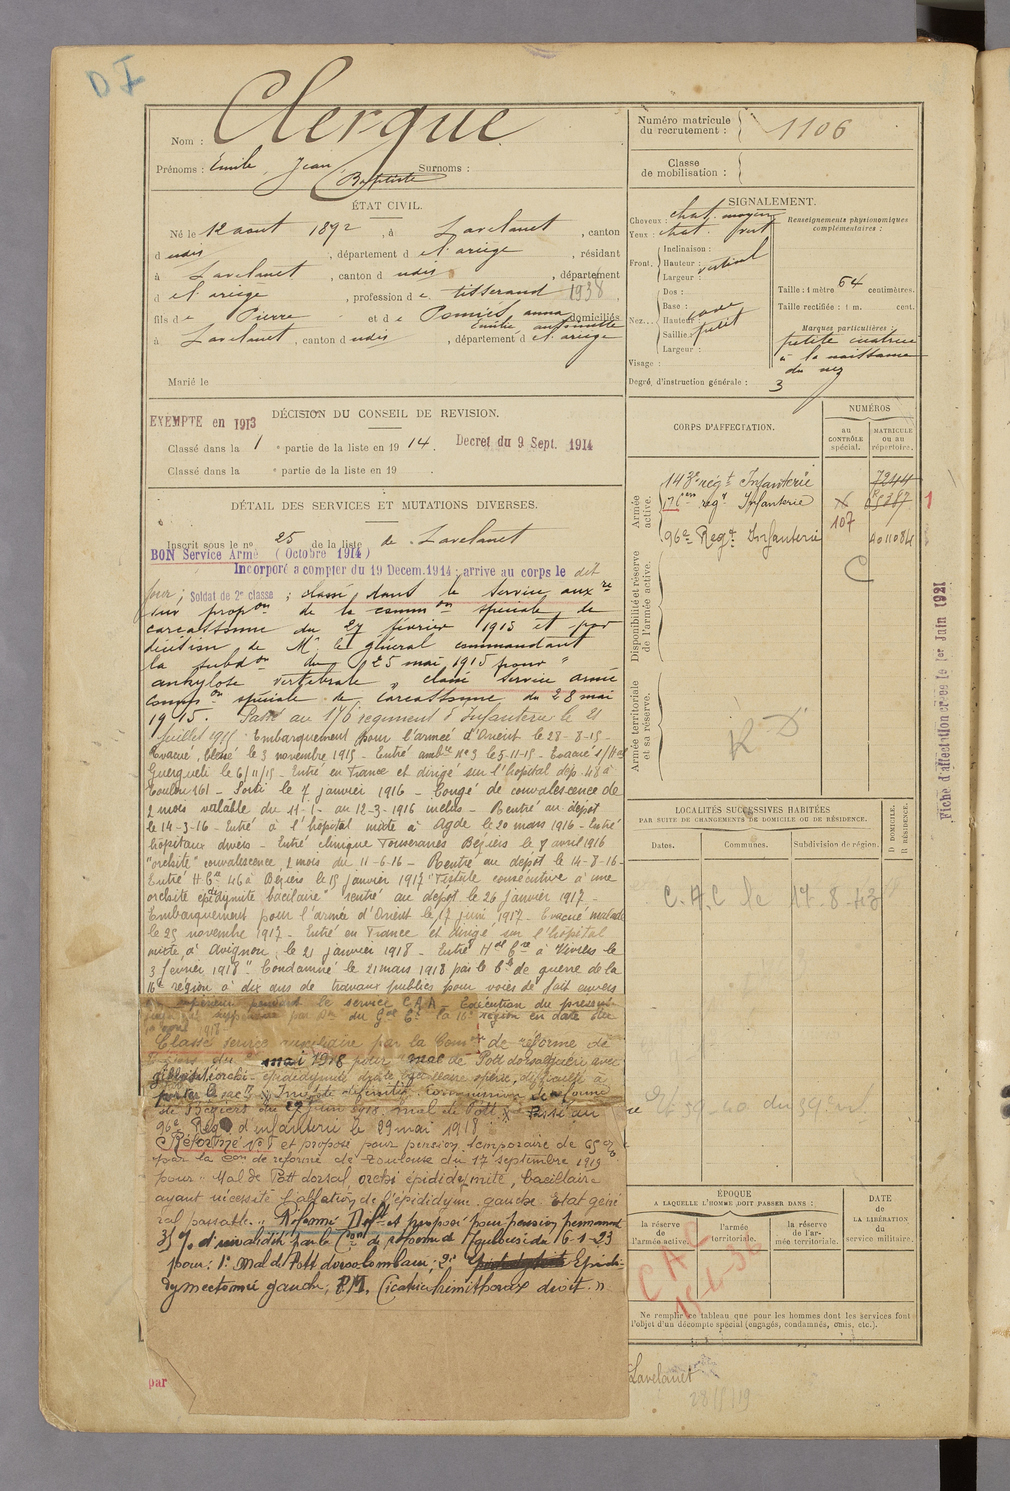 D I
Nom : Clergue
Prénoms : Emile Jean Baptiste Surnoms :
ÉTAT CIVIL.
Né le 12 aout 1892, à Lavelanet, canton
d udis, département d el. ariège, résidant
à Lavelanet, canton d udis, département
d el. ariège, profession d e tisserand 1938
fils d e Pierre et d e Pomiès anna domiciliés
Emilie antoinette
à Lavelanet, canton d udis, département d el. ariège
Marié le
Numéro matricule du recrutement : 1106
Classe de mobilisation :
SIGNALEMENT.
Cheveux : chat. moyen
Yeux : chat.
Renseignements physionomiques complémentaires :
Front. Inclinaison :
Hauteur : vertical
Largeur :
Nez... Dos :
Base : cave
Hauteur :
Saillie : petit
Largeur :
Visage :
Taille : 1 mètre 64 centimètres.
Taille rectifiée : 1 m. cent.
Marques particulières :
petite cicatrice
à la naissance
du nez
Degré d'instruction générale : 3
DÉCISION DU CONSEIL DE REVISION.
EXEMPTE en 1913
Classé dans la 1 e partie de la liste en 1914. Decret du 9 Sept. 1914
Classé dans la e partie de la liste en 19
DÉTAIL DES SERVICES ET MUTATIONS DIVERSES.
Inscrit sous le no 25 de la liste de Lavelanet
BON Service Armé (Octobre 1914)
Incorporé a compter du 19 Decem. 1914 ; arrive au corps le dit
jour ; Soldat de 2e classe ; classé dans le service auxre
sur propon de la common spéciale de
carcassonne du 27 février 1915 et par
décision de Mr le général commandant
la subdon du 25 mai 1915 pour "
ankylose vertébrale " classé service armé
common spéciale de Carcassonne du 28 mai
1915. Passé au 176 régiment d'Infanterie le 21
juillet 1915. Embarquement pour l'armée d'Orient le 28-8-15-
Evacué, blessé le 3 novembre 1915 - Entré ambce No 3 le 5-11-15 - Evacué s/
Guergueli le 6/11/15 - Entré en France et dirigé sur l'hôpital dép. 48 à
Toulon 161 - Sorti le 7 janvier 1916 - Congé de convalescence de
2 mois valable du 11-1- au 12-3-1916 inclus - Rentré au dépot
le 14-3-16 - Entré à l'hôpital mixte à Agde le 20 mars 1916 - Entré
hôpitaux divers - Entré clinique Béziers le 8 avril 1916
"orchite" convalescence 2 mois du 11-6-16 - Rentré au dépot le 14-8-16 -
Entré H. Cre 46 à Béziers le 15 janvier 1917 "Fistule consécutive à une
orchite épididymite bacilaire" rentré au dépot le 26 janvier 1917 -
Embarquement pour l'armée d'Orient le 17 juin 1917 - Evacué malade
le 25 novembre 1917 - Entré en France et dirigé sur l'hôpital
mixte à Avignon, le 21 janvier 1918 - Entré Hal Cre à Viviers le
3 février 1918" Condamné le 21 mars 1918 par le Cl de guerre de la
16e région à dix ans de travaux publics pour voies de fait envers
un supérieur pendant le service C.A.A - Exécution du présent
du Gal Ct la 16e région en date du
avril 1918
Classé service auxiliaire par la Comon de réforme de
Béziers du mai 1918 pour "mal de Pott dorsal guéri avec
gibbosité orchi-épididymite bacillaire opérée, difficulté à
porter le sac
de Béziers du 29 1918. mal de Pott. Passé au
96e Regt d'infanterie le 29 mai 1918
Réformé No 1 et proposé pour pension temporaire de 65 %
par la Con de réforme de Toulouse du 17 septembre 1919
pour : Mal de Pott dorsal, orchi épididymite, bacillaire
ayant nécessité l'ablation de l'épididyme gauche. Etat géné
ral passable. " Réformé Déft et proposé pour pension permanent
35 % d'invalidité par la Con de réforme de Toulouse du 6-1-23
pour : 1o mal de Pott dorso lombaire, 2o Epidi-
dymectomie gauche, P.M. Cicatrice hémithorax droit. "
par
CORPS D'AFFECTATION.
NUMÉROS
au CONTRÔLE spécial.
MATRICULE ou au répertoire.
Armée active.
143e régt Infanterie 7244
176em régt Infanterie X 1
96e Regt Infanterie 107
C
Disponibilité et réserve de l'armée active.
Armée territoriale et sa réserve.
R D
Fiche d'affectation créée le 1er Juin 1921
LOCALITÉS SUCCESSIVES HABITÉES
PAR SUITE DE CHANGEMENTS DE DOMICILE OU DE RÉSIDENCE.
Dates. Communes. Subdivision de région. D DOMICILE. R RÉSIDENCE.
C.A.C le 17-8-43
ÉPOQUE
A LAQUELLE L'HOMME DOIT PASSER DANS :
DATE DE LA LIBÉRATION du service militaire.
la réserve de l'armée active.
l'armée territoriale.
la réserve de l'armée territoriale.
CAC
Ne remplir ce tableau que pour les hommes dont les services font
l'objet d'un décompte spécial (engagés, condamnés, omis, etc.).
Lavelanet